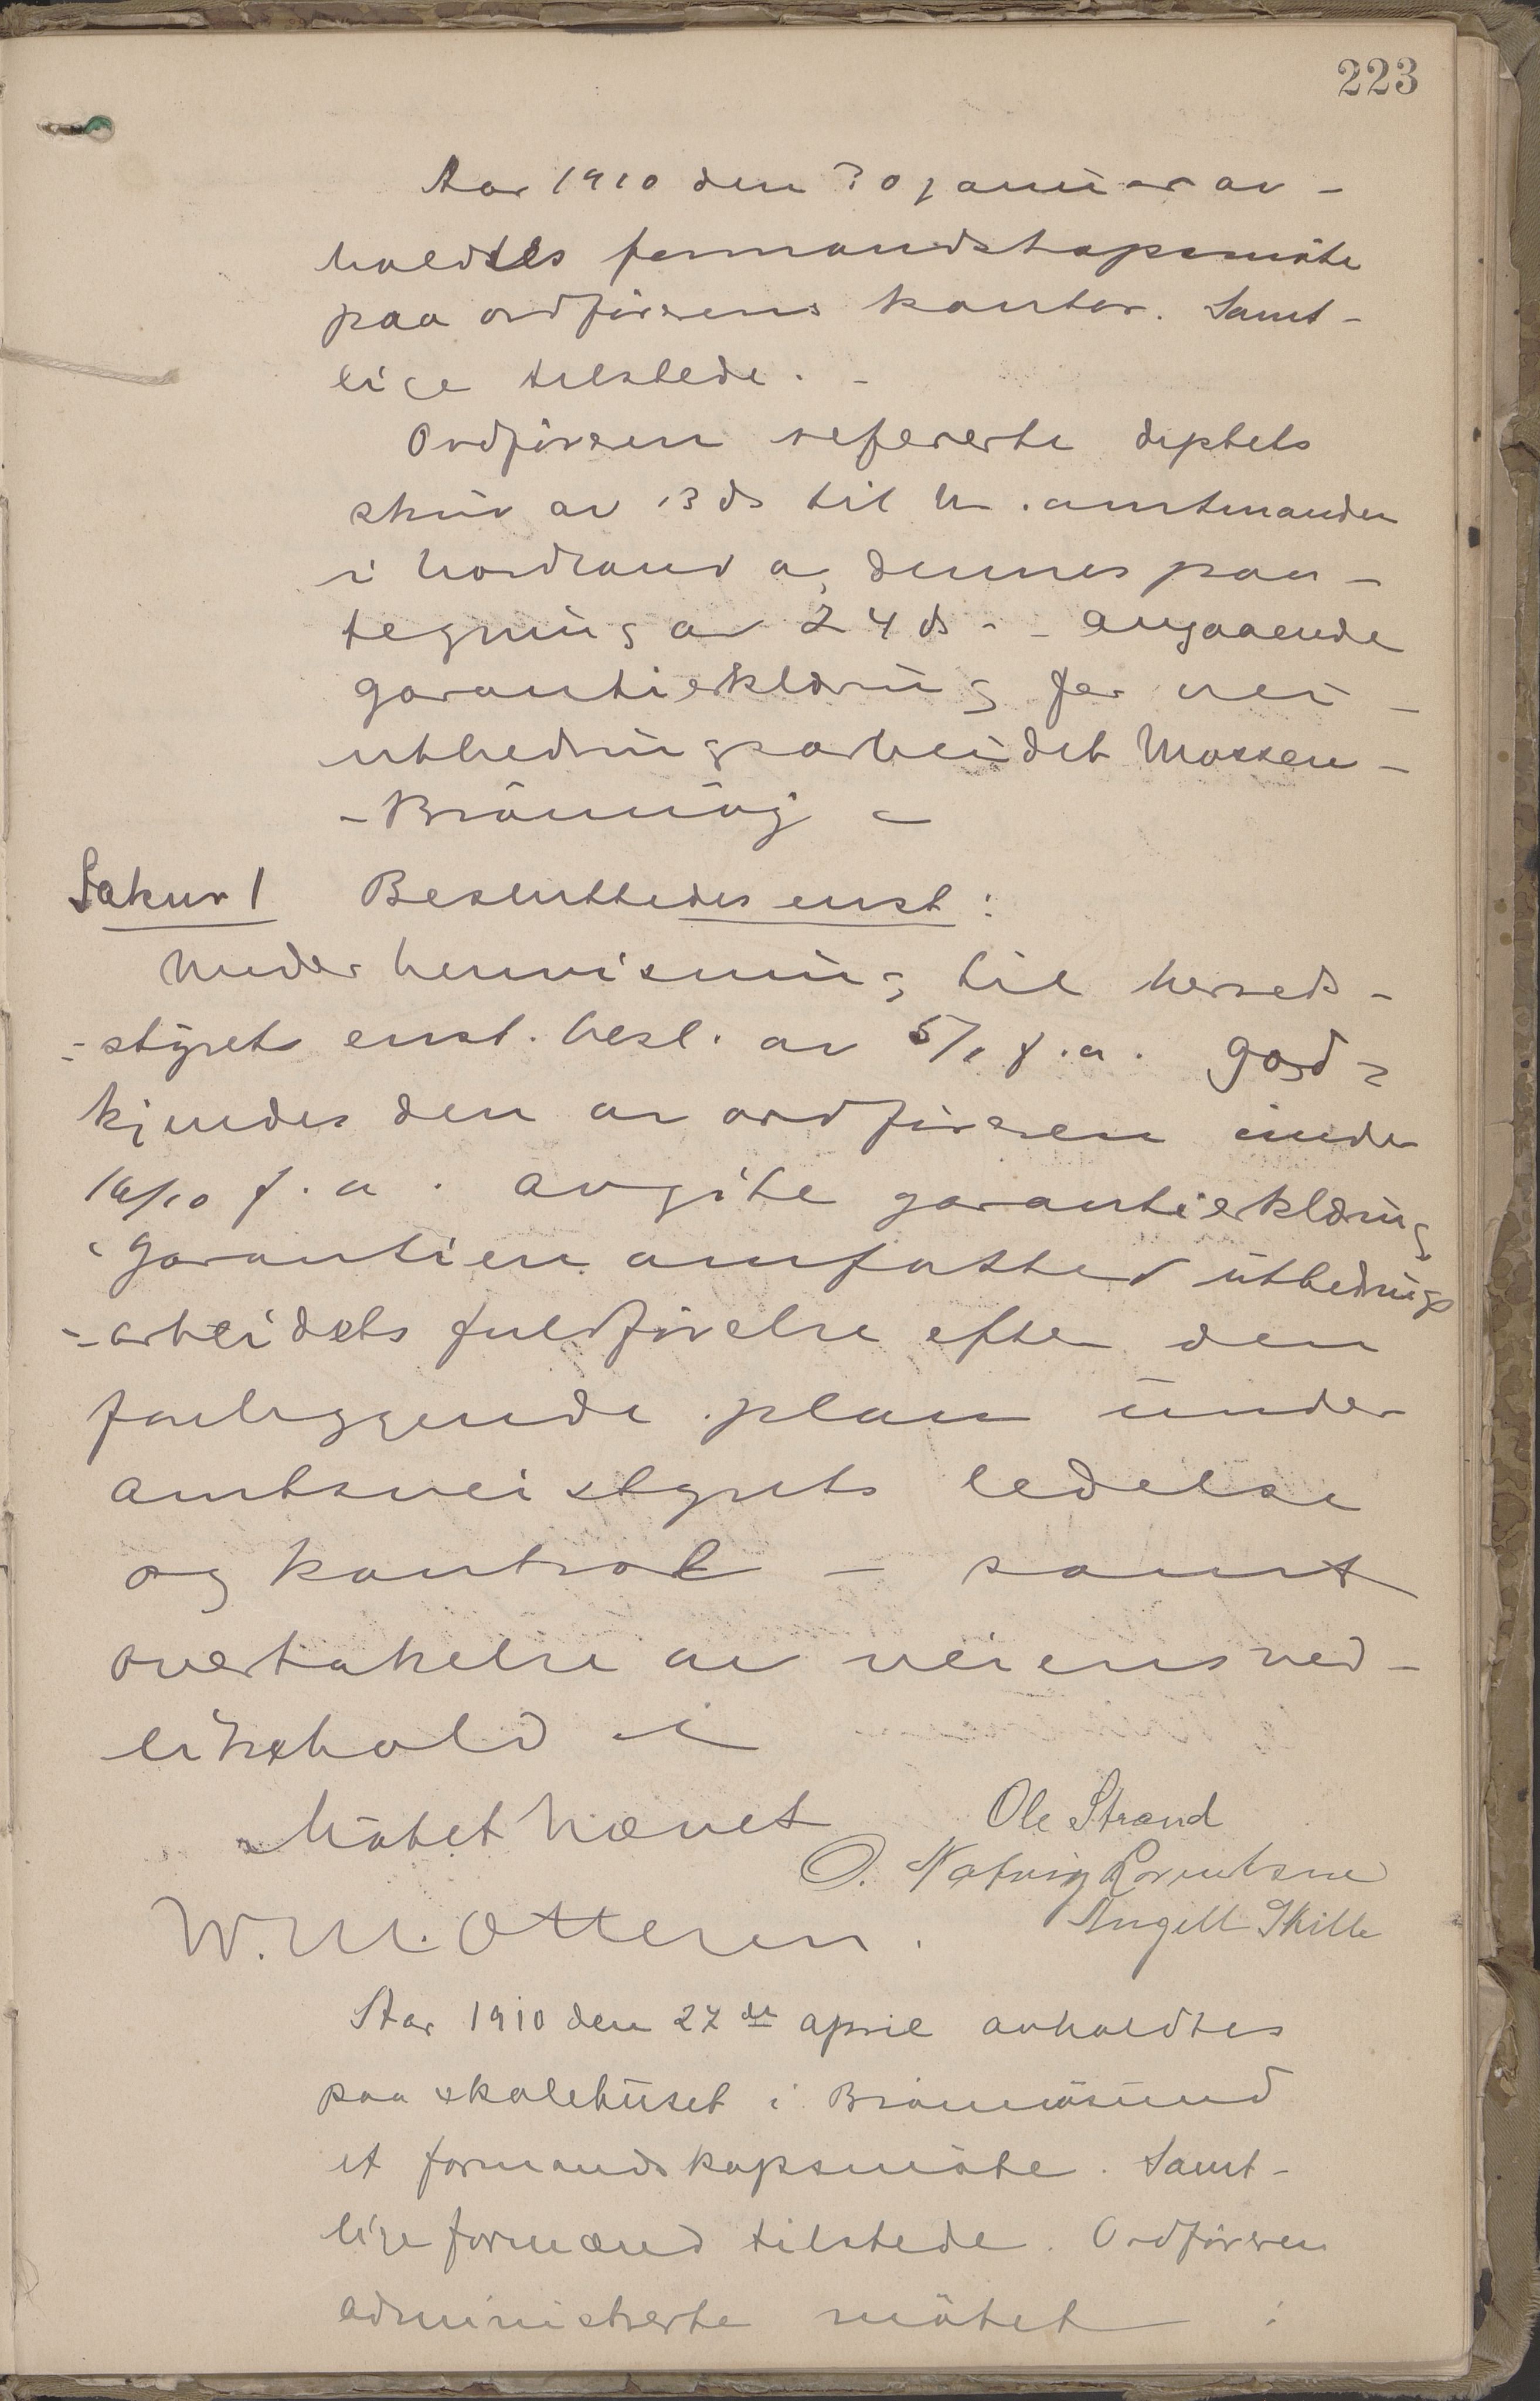 223
Aar 1910 den 30 januar av-
holdtes formandskapsmöte
paa ordförerens kontor. Samt-
lige tilstede. -
Ordföreren refererte deptets
skriv av 13 ds til hr. amtmanden
i Nordland og dennes paa-
tegning av 24 ds. - angaaende
garantierklæring for vei-
utbedringsarbeidet Mossen-
- Brönnöy -
Saknr 1 Besluttedes enst:
Under henvisning til herreds-
-styrets enst. besl. av 5/1 f.a. god-
kjendes den av ordföreren under
16/10 f.a. avgite garantierklæring
Garantien omfatter utbedrings
-arbeidets fuldförelse efter den
foreliggende plan under
amtsveistyrets ledelse
og kontrol - samt
overtakelse av veiens ved-
likehold
Mötet hævet
Ole Strand
O. Natvig Lorentsen
W. M. Ottesen.
Angell Skille
Aar 1910 den 27de april avholdtes
paa skolehuset i Brönnösund
et formandskapsmöte. Samt-
lige formænd tilstede. Ordföreren
administrerte mötet :